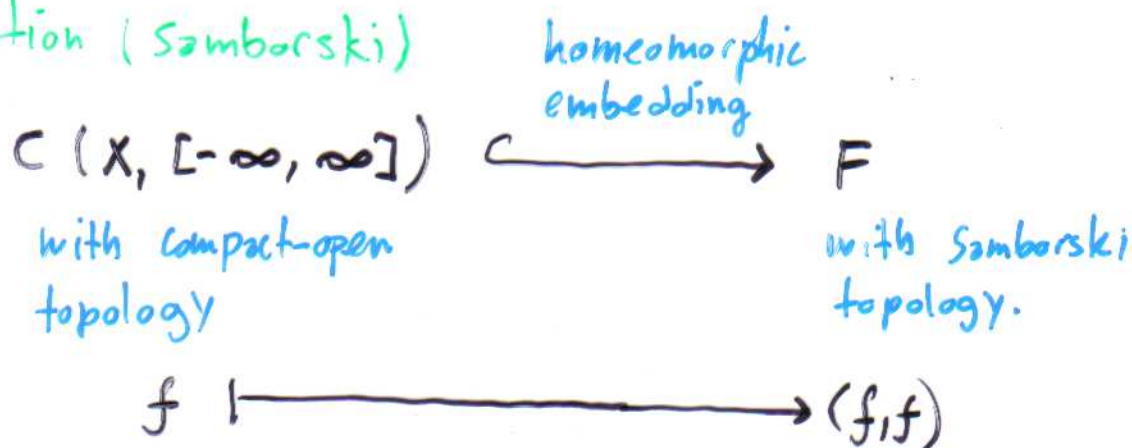 tion (Samborski)
homeomorphic
embedding
C (X, [-∞, ∞]) ↪ F
with compact-open
topology
with Samborski
topology.
f ↦ (f,f)